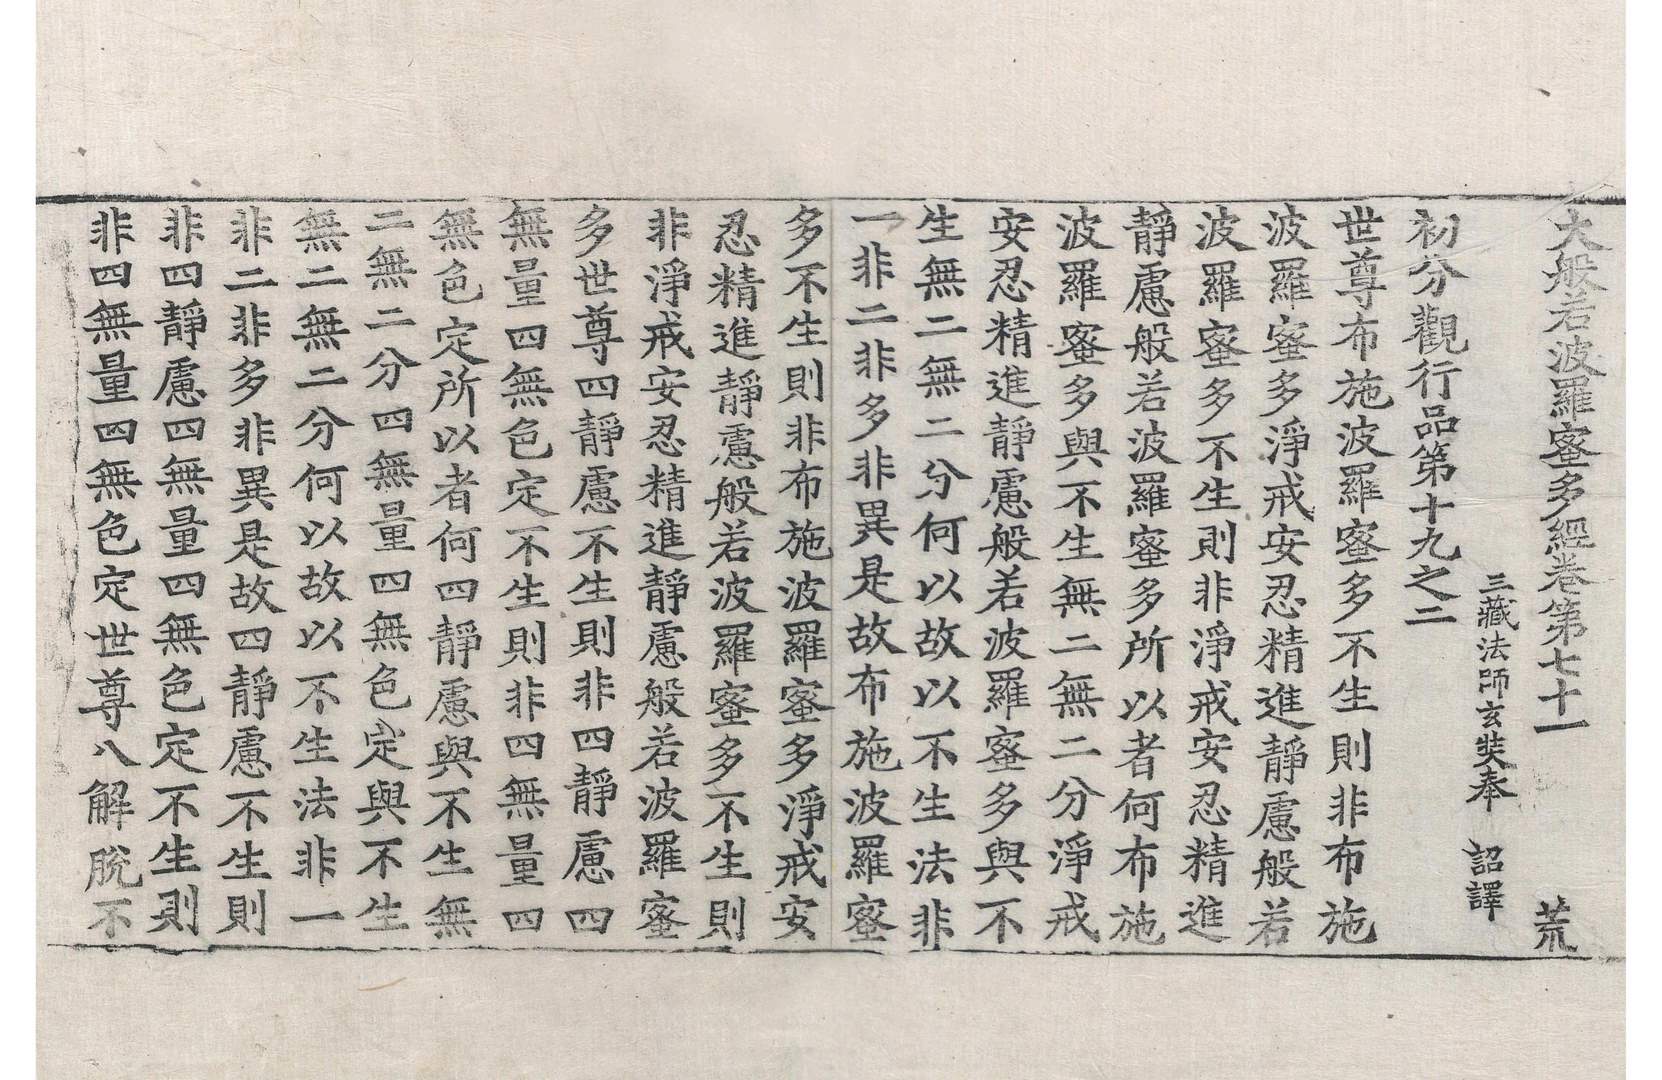 大般若波羅蜜多經卷第七十一 荒
三藏法師玄奘奉 詔譯
初分觀行品第十九之二
世尊布施波羅蜜多不生則非布施
波羅蜜多淨戒安忍精進靜慮般若
波羅蜜多不生則非淨戒安忍精進
靜慮般若波羅蜜多所以者何布施
波羅蜜多與不生無二無二分淨戒
安忍精進靜慮般若波羅蜜多與不
生無二無二分何以故以不生法非
一非二非多非異是故布施波羅蜜
多不生則非布施波羅蜜多淨戒安
忍精進靜慮般若波羅蜜多不生則
非淨戒安忍精進靜慮般若波羅蜜
多世尊四靜慮不生則非四靜慮四
無量四無色定不生則非四無量四
無色定所以者何四靜慮與不生無
二無二分四無量四無色定與不生
無二無二分何以故以不生法非一
非二非多非異是故四靜慮不生則
非四靜慮四無量四無色定不生則
非四無量四無色定世尊八解脫不